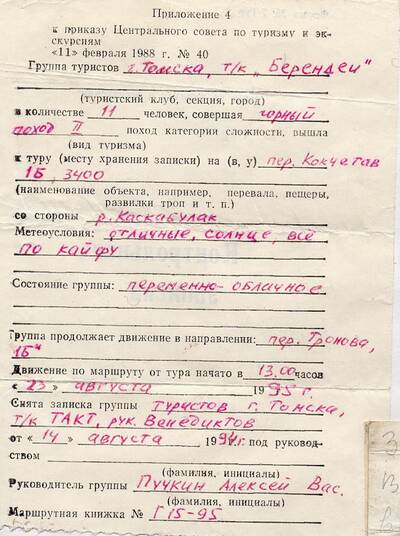 Приложение 4
к приказу Центрального совета по туризму и эк-
скурсиям
«11» февраля 1988 г. № 40
Группа туристов г. Томска, т/к „Берендеи"
(туристский клуб, секция, город)
в количестве 11 человек, совершая горный
поход II поход категории сложности, вышла
(вид туризма)
к туру (месту хранения записки) на (в, у) пер. Кокчетав
1Б, 3400
(наименование объекта, например, перевала, пещеры,
развилки троп и т. п.)
со стороны р. Каскабулак
Метеоусловия: отличные, солнце, всё
по кайфу
Состояние группы: переменно-облачное
Группа продолжает движение в направлении: пер. Тронова,
1Б"
Движение по маршруту от тура начато в 13.00 часов
« 23 » августа 1995 г.
Снята записка группы туристов г. Томска,
т/к ТАКТ, рук. Венедиктов
от « 14 » августа 1994 г. под руковод-
ством
(фамилия, инициалы)
Руководитель группы Пучкин Алексей Вас.
(фамилия, инициалы)
Маршрутная книжка № Г 15-95